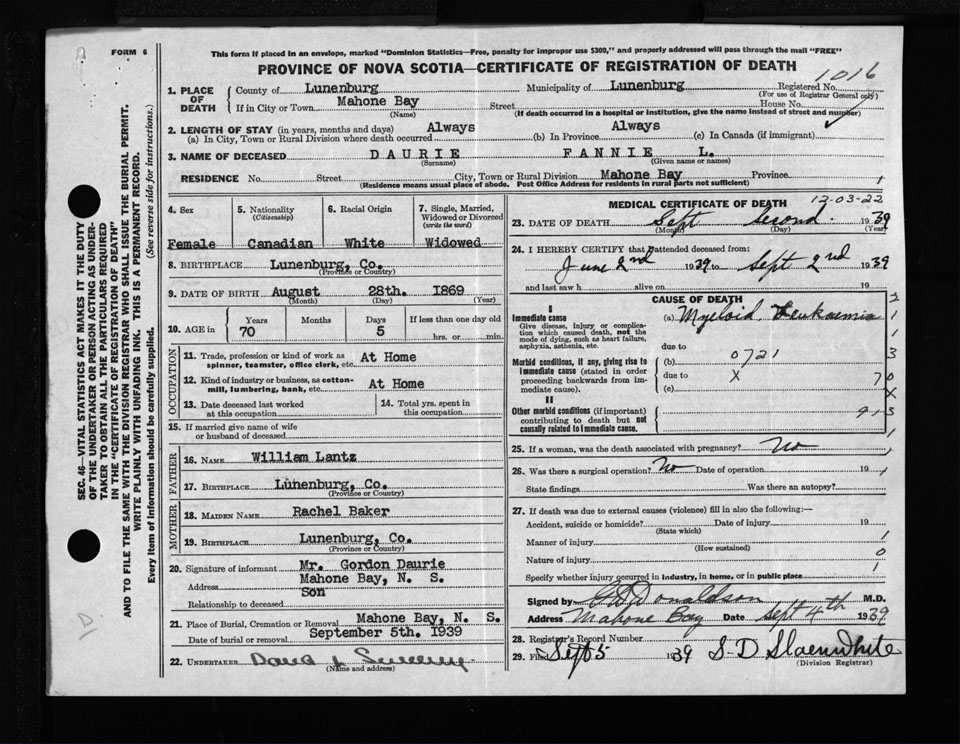 FORM 6
This form if placed in an envelope, marked "Dominion Statistics—Free, penalty for improper use $300," and properly addressed will pass through the mail "FREE"
PROVINCE OF NOVA SCOTIA—CERTIFICATE OF REGISTRATION OF DEATH
1016
1. PLACE OF DEATH
County of Lunenburg Municipality of Lunenburg Registered No.
(For use of Registrar General only)
If in City or Town Mahone Bay Street House No.
(Name) (If death occurred in a hospital or institution, give the name instead of street and number)
2. LENGTH OF STAY (in years, months and days) Always Always
(a) In City, Town or Rural Division where death occurred (b) In Province (c) In Canada (if immigrant)
3. NAME OF DECEASED DAURIE FANNIE L.
(Surname) (Given name or names)
RESIDENCE No. Street City, Town or Rural Division Mahone Bay Province
(Residence means usual place of abode. Post Office Address for residents in rural parts not sufficient)
4. Sex Female
5. Nationality (Citizenship) Canadian
6. Racial Origin White
7. Single, Married, Widowed or Divorced (write the word) Widowed
8. BIRTHPLACE Lunenburg, Co.
(Province or Country)
9. DATE OF BIRTH August 28th. 1869
(Month) (Day) (Year)
10. AGE in Years Months Days If less than one day old
70 5 hrs. or min.
OCCUPATION
11. Trade, profession or kind of work as spinner, teamster, office clerk, etc. At Home
12. Kind of industry or business, as cotton-mill, lumbering, bank, etc. At Home
13. Date deceased last worked at this occupation
14. Total yrs. spent in this occupation
15. If married give name of wife or husband of deceased
FATHER
16. NAME William Lantz
17. BIRTHPLACE Lunenburg, Co.
(Province or Country)
MOTHER
18. MAIDEN NAME Rachel Baker
19. BIRTHPLACE Lunenburg, Co.
(Province or Country)
20. Signature of informant Mr. Gordon Daurie
Address Mahone Bay, N. S.
Relationship to deceased Son
21. Place of Burial, Cremation or Removal Mahone Bay, N. S.
Date of burial or removal September 5th. 1939
22. UNDERTAKER
(Name and address)
MEDICAL CERTIFICATE OF DEATH 12-03-22
23. DATE OF DEATH Sept Second 1939
(Month) (Day) (Year)
24. I HEREBY CERTIFY that I attended deceased from:
June 2nd 1939 to Sept 2nd 1939
and last saw h alive on 19
CAUSE OF DEATH
I
Immediate cause (a) Myeloid Leukaemia
Give disease, injury or complication which caused death, not the mode of dying, such as heart failure, asphyxia, asthenia, etc.
due to
Morbid conditions, if any, giving rise to immediate cause (stated in order proceeding backwards from immediate cause).
(b) 0721
due to X
(c)
II
Other morbid conditions (if important) contributing to death but not causally related to immediate cause.
25. If a woman, was the death associated with pregnancy? No
26. Was there a surgical operation? No Date of operation 19
State findings Was there an autopsy?
27. If death was due to external causes (violence) fill in also the following:—
Accident, suicide or homicide? Date of injury 19
(State which)
Manner of injury 1
(How sustained)
Nature of injury 0
1
Specify whether injury occurred in industry, in home, or in public place
Signed by G D Donaldson M.D.
Address Mahone Bay Date Sept 4th 1939
28. Registrar's Record Number
29. Filed Sept 5 1939 S-D Slaenwhite
(Division Registrar)
SEC. 46—VITAL STATISTICS ACT MAKES IT THE DUTY
OF THE UNDERTAKER OR PERSON ACTING AS UNDER-
TAKER TO OBTAIN ALL THE PARTICULARS REQUIRED
IN THE "CERTIFICATE OF REGISTRATION OF DEATH"
AND TO FILE THE SAME WITH THE DIVISION REGISTRAR WHO SHALL ISSUE THE BURIAL PERMIT.
WRITE PLAINLY WITH UNFADING INK. THIS IS A PERMANENT RECORD.
Every item of information should be carefully supplied. (See reverse side for instructions.)